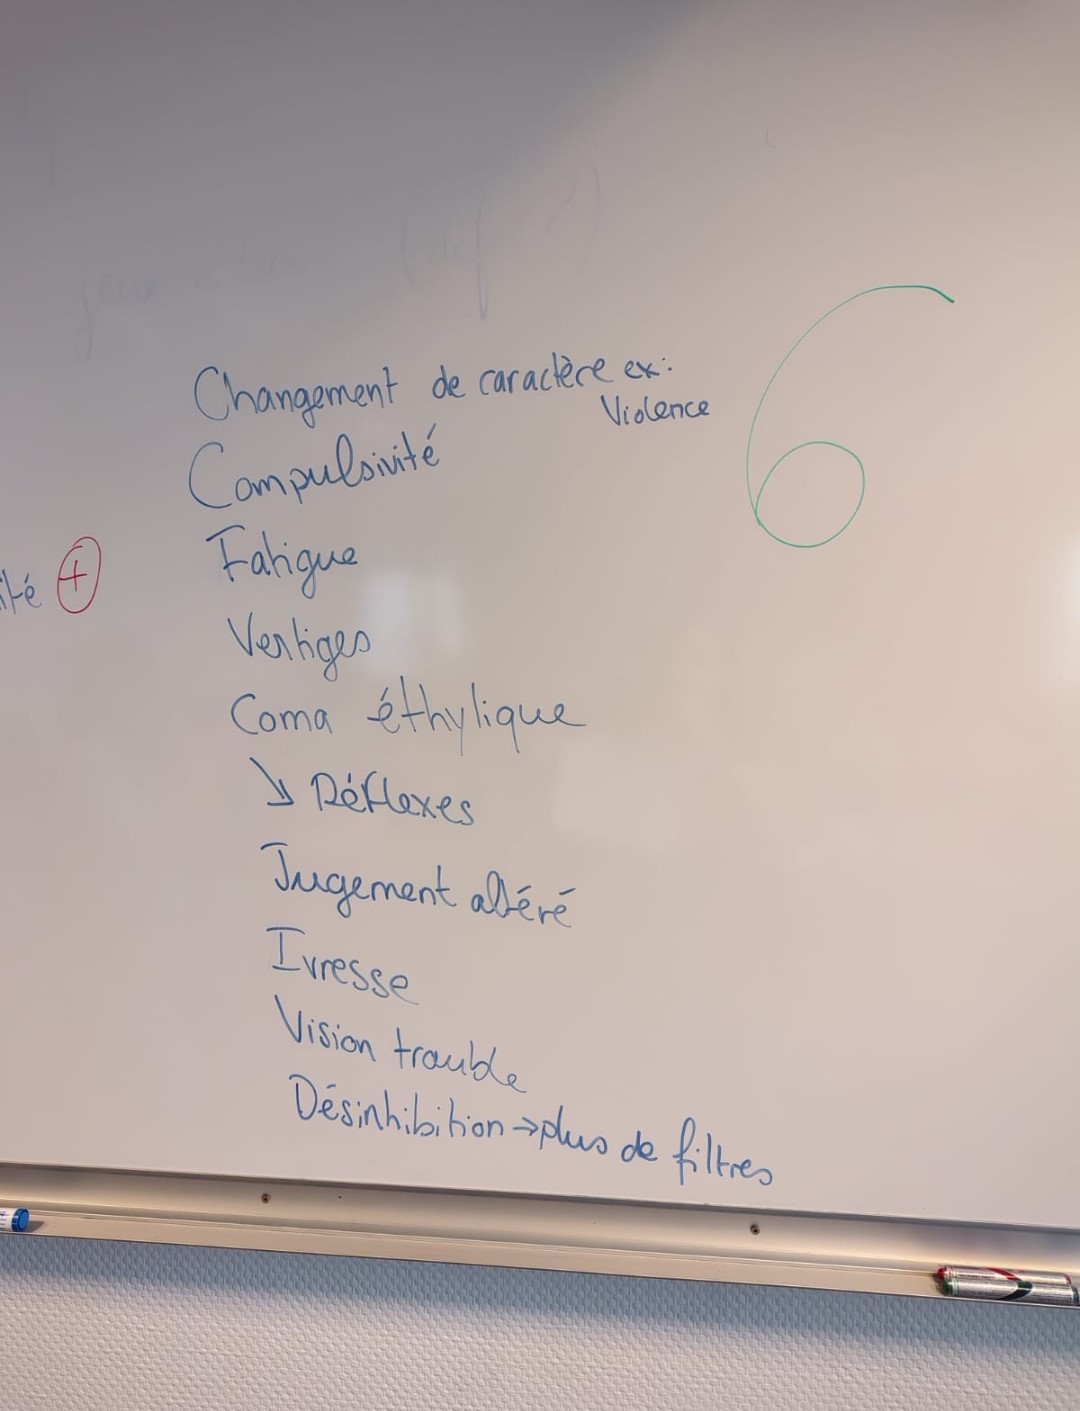 6
Changement de caractère ex:
Violence
Compulsivité
Fatigue
ité +
Vertiges
Coma éthylique
↘ Réflexes
Jugement altéré
Ivresse
Vision trouble
Désinhibition → plus de filtres